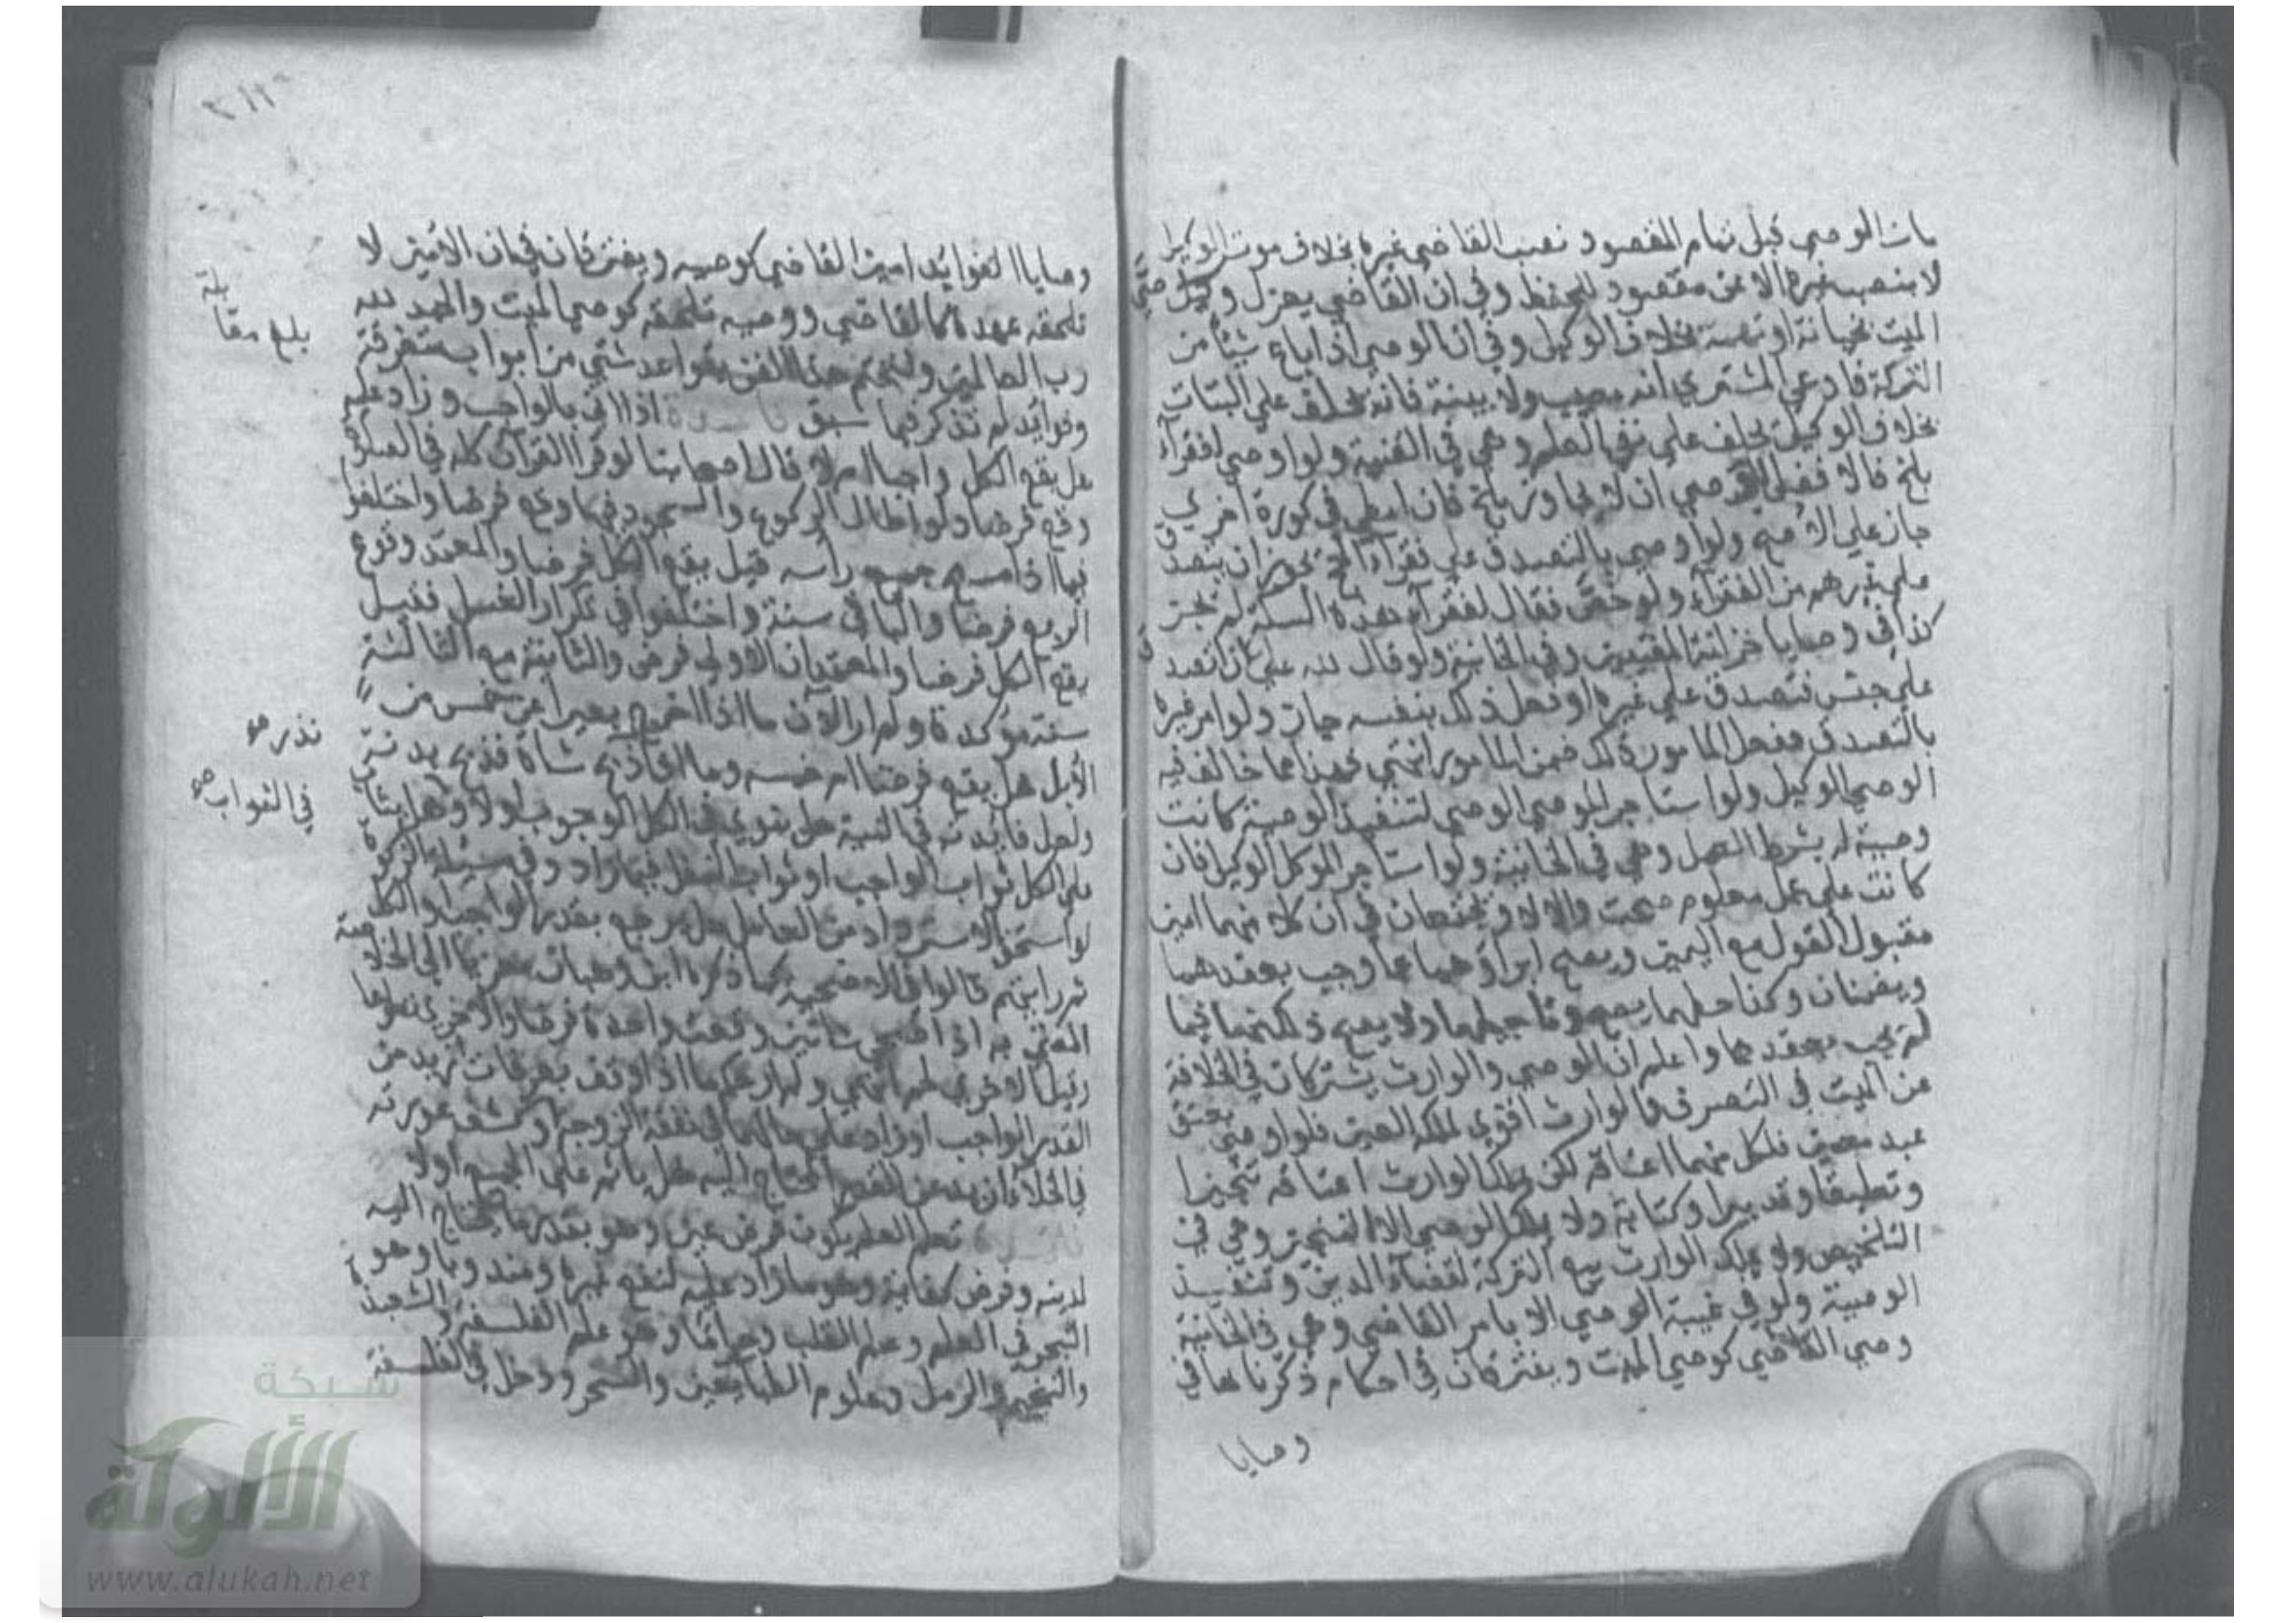 مات الوصي قبل تمام المقصود نصب القاضي غيره بخلاف موت الوكيل
لا ينصب غيره الا عن مفقود للحفظ وفي ان القاضي يعزل وكيل
الميت بخيانة او تهمة بخلاف الوكيل وفي ان الوصي اذا باع شيئا من
التركة فادعى المشتري انه معيب ولا بينة فانه يحلف على البتات
بخلاف الوكيل يحلف على نفي العلم وهي في القنية ولو اوصى لفقرآء
بلخ فالافضل للوصي ان لا يجاوز بلخ فان اعطى في كورة اخرى
جاز على الاصح ولو اوصى بالتصدق على فقرآء الحج يجوز ان يتصدق
على غيرهم من الفقرآء ولو خص فقال لفقرآء هذه السكة لم يجز
كذا في وصايا خزانة المفتيين وفي الخانية ولو قال لله علي ان اتصدق
على جنس فتصدق على غيره او فعل ذلك بنفسه جاز ولو امر غيره
بالتصدق ففعل المامور ذلك ضمن المامور انتهى فهذا مما خالف فيه
الوصي الوكيل ولو استاجر الموصي الوصي لتنفيذ الوصية كانت
وصية له بشرط العمل وهي في الخانية ولو استاجر الموكل الوكيل فان
كانت على عمل معلوم صحت والا لا ويجتمعان في ان كلا منهما امين
مقبول القول مع اليمين ويصح ابراؤهما عما وجب بعقدهما
ويضمنان وكذا حطهما يصح وتاجيلهما ولا يصح ذلك منهما فيما
لم يجب بعقدهما واعلم ان الموصي والوارث يشتركان في الخلافة
عن الميت في التصرف فالوارث اقوى لملكه العين فلو اوصى بعتق
عبد معين فلكل منهما اعتاقه لكن يملك الوارث اعتاقه تنجيزا
وتعليقا وتدبيرا وكتابة ولا يملك الوصي الا التنجيز وهي في
التلخيص ولا يملك الوارث بيع التركة لقضاء الدين وتنفيذ
الوصية ولو في غيبة الوصي الا بامر القاضي وهي في الخانية
وصي القاضي كوصي الميت ويفترقان في احكام ذكرناها في
وصايا
وصايا الفوائد امين القاضي كوصيه ويفترقان في ان الامين لا
تلحقه عهدة كالقاضي ووصيه تلحقه كوصي الميت والحمد لله
رب العالمين ولنختم هذا الفن بقواعد شتى من ابواب متفرقة
وفوائد لم تذكر فيما سبق اذا اتى بالواجب وزاد عليه
هل يقع الكل واجبا ام لا قال اصحابنا لو قرا القرآن كله في الصلوة
وقع فرضا ولو اطال الركوع والسجود فيها وقع فرضا واختلفوا
فيما اذا مسح جميع راسه قيل يقع الكل فرضا والمعتمد وقوع
الربع فرضا والباقي سنة واختلفوا في تكرار الغسل فقيل
يقع الكل فرضا والمعتمد ان الاولى فرض والثانية مع الثالثة
سنة مؤكدة ولم ار الآن ما اذا اخرج بعيرا عن خمس من
الابل هل يقع فرضا ام خمسه وما اذا نذر ذبح شاة فذبح بدنة
ولعل فائدته في النية هل ينوي في الكل الوجوب اولا وهل يثاب
على الكل ثواب الواجب او ثواب النفل فيما زاد وفي مسئلة الزكوة
لو استحق الاسترداد من العامل هل يرجع بقدر الواجب او الكل
ثم رايتهم قالوا في الاضحية كما ذكره ابن وهبان معزيا الى الخلاصة
الغني به اذا ضحى شاتين وقعت واحدة فرضا والاخرى تطوعا
وقيل الاخرى لحم انتهى ولم ار حكم ما اذا وقف بعرفات ازيد من
القدر الواجب او زاد على حالهما في نفقة الزوجة او كشف عورته
في الخلاء زائدا عن القدر المحتاج اليه هل ياثم على الجميع اولا
تعلم العلم يكون فرض عين وهو بقدر ما يحتاج اليه
لدينه وفرض كفاية وهو ما زاد عليه لنفع غيره ومندوبا وهو
التبحر في العلم وعلم القلب وحراما وهو علم الفلسفة والشعبذة
والتنجيم والرمل وعلوم الطبائعين والسحر ودخل في الفلسفة
بلغ مقابلة
نذر
في الثواب
شبكة
الألوكة
www.alukah.net